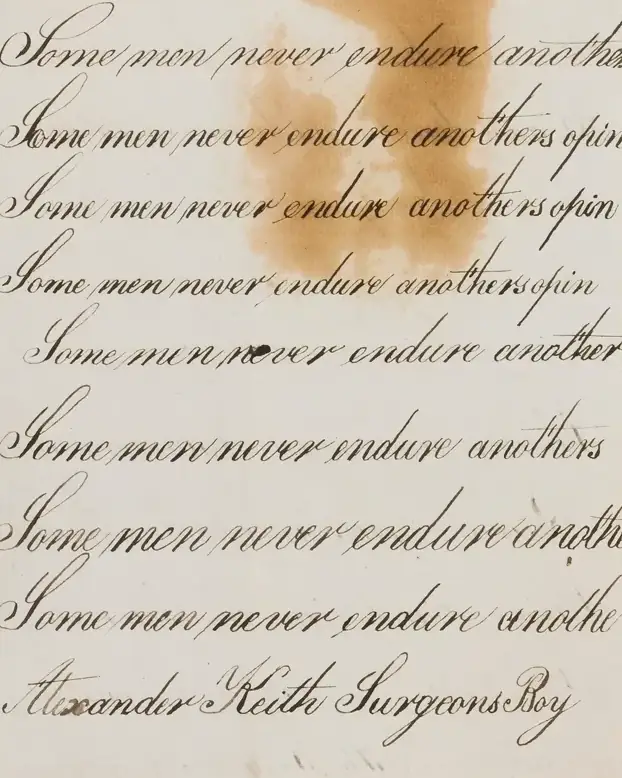 Some men never endure another
Some men never endure anothers opin
Some men never endure anothers opin
Some men never endure anothers opin
Some men never endure another
Some men never endure anothers
Some men never endure anothe
Some men never endure anothe
Alexander Keith Surgeons Boy